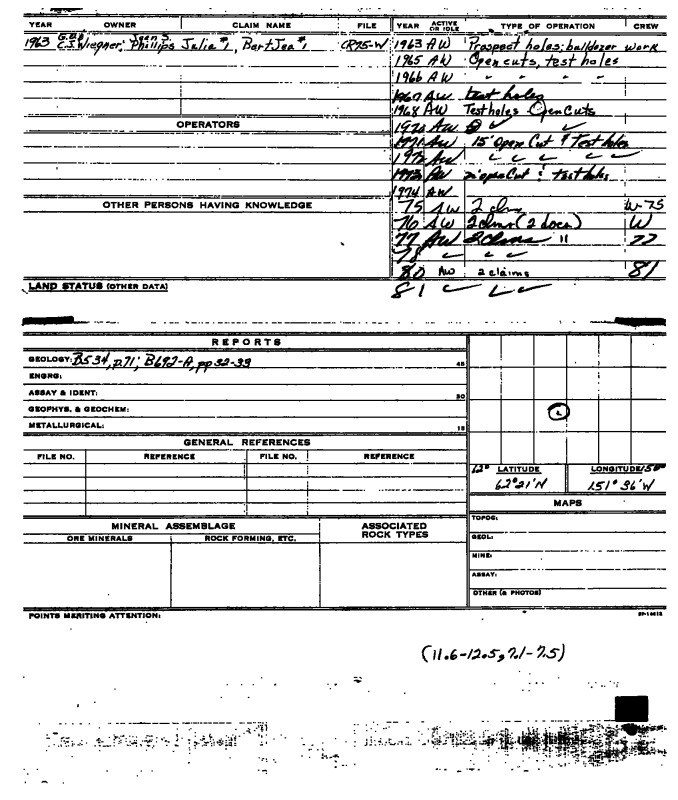 YEAR OWNER CLAIM NAME FILE YEAR ACTIVE OR IDLE TYPE OF OPERATION CREW
1963 C.J. Wiegner; Phillips Julia #1, Bart Jea #1 CR75-W 1963 AW Prospect holes; bulldozer work
1965 AW Open cuts, test holes
1966 AW " " " "
1967 AW test holes
1968 AW Test holes Open Cuts
OPERATORS
1970 AW
1971 AW 15' Open Cut & Test holes
1972 AW
1973 AW open Cut & test holes
1974 AW
OTHER PERSONS HAVING KNOWLEDGE
75 AW 2 clms W-75
76 AW 2 clms (2 docs) W
77 AW 2 clms " 77
78
80 AW 2 claims 81
LAND STATUS (OTHER DATA)
81
REPORTS
GEOLOGY: B534, p.71; B692-A, pp 32-33 45
ENGRG:
ASSAY & IDENT: 30
GEOPHYS. & GEOCHEM:
METALLURGICAL: 15
GENERAL REFERENCES
FILE NO. REFERENCE FILE NO. REFERENCE
62° LATITUDE LONGITUDE 150°
62°21'N 151°36'W
MAPS
TOPOG:
MINERAL ASSEMBLAGE
ASSOCIATED ROCK TYPES
ORE MINERALS ROCK FORMING, ETC.
GEOL:
MINE:
ASSAY:
OTHER (& PHOTOS)
POINTS MERITING ATTENTION:
(11.6-12.5, 7.1-7.5)